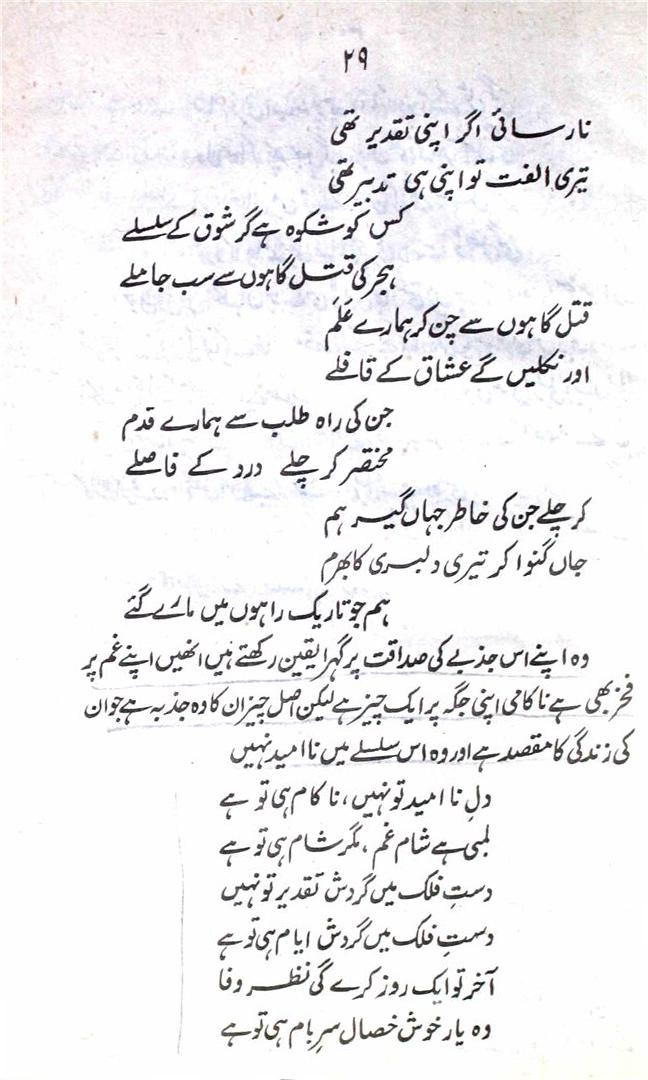 ۲۹
نارسائی اگر اپنی تقدیر تھی
تیری الفت تو اپنی ہی تدبیر تھی
کس کو شکوہ ہے گر شوق کے سلسلے
ہجر کی قتل گاہوں سے سب جا ملے
قتل گاہوں سے چن کر ہمارے عَلَم
اور نکلیں گے عشاق کے قافلے
جن کی راہ طلب سے ہمارے قدم
مختصر کر چلے درد کے فاصلے
کر چلے جن کی خاطر جہاں گیر ہم
جاں گنوا کر تیری دلبری کا بھرم
ہم جو تاریک راہوں میں مارے گئے
وہ اپنے اس جذبے کی صداقت پر گہرا یقین رکھتے ہیں انھیں اپنے غم پر
فخر بھی ہے ناکامی اپنی جگہ پر ایک چیز ہے لیکن اصل چیز ان کا وہ جذبہ ہے جو ان
کی زندگی کا مقصد ہے اور وہ اس سلسلے میں ناامید نہیں
دلِ ناامید تو نہیں، ناکام ہی تو ہے
لمبی ہے شام غم، مگر شام ہی تو ہے
دستِ فلک میں گردش تقدیر تو نہیں
دستِ فلک میں گردش ایام ہی تو ہے
آخر تو ایک روز کرے گی نظر وفا
وہ یار خوش خصال سرِ بام ہی تو ہے